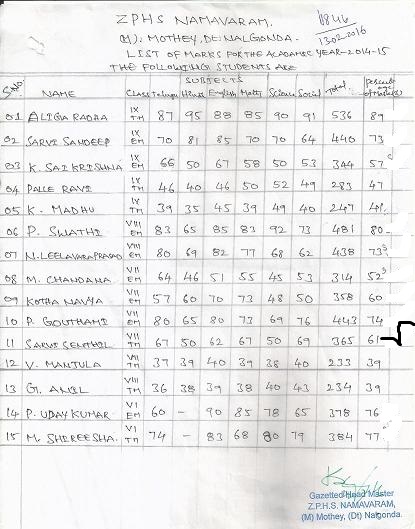 Z.P.H.S NAMAVARAM.
(M): MOTHEY, Dt: NALGONDA.
13-02-2016
LIST OF MARKS FOR THE ACADAMIC YEAR-2014-15
THE FOLLOWING STUDENTS ARE
SUBJECTS
S.No. NAME Class Telugu Hindi English Maths Science Social Total Percent age of Marks
01 ALIGIA RADHA IX TM 87 95 88 85 90 91 536 89
02 SARVI SANDEEP IX EM 70 81 85 70 70 64 440 73
03 K. SAI KRISHNA IX EM 66 50 67 58 50 53 344 57
04 PALLE RAVI IX TM 46 40 46 50 52 49 283 47
05 K. MADHU IX TM 39 35 45 39 49 40 247 41
06 P. SWATHI VIII EM 83 65 85 83 92 73 481 80
07 N. LEELAVARA PRASAD VIII EM 80 69 82 77 68 62 438 73
08 M. CHANDANA VIII EM 64 46 51 55 45 53 314 52
09 KOTHA NAVYA VIII EM 57 60 70 73 48 50 358 60
10 P. GOUTHAMI VIII EM 80 65 80 73 69 76 443 74
11 SARVI SENTHIL VII TM 67 50 62 67 50 69 365 61
12 V. MANTULA VII TM 37 39 40 39 38 40 233 39
13 G. ANIL VII TM 36 38 39 38 40 43 234 39
14 P. UDAY KUMAR VI EM 60 - 90 85 78 65 378 76
15 M. SHIREESHA. VI TM 74 - 83 68 80 79 384 77
Gazetted Head Master
Z.P.H.S. NAMAVARAM,
(M) Mothey, (Dt) Nalgonda.